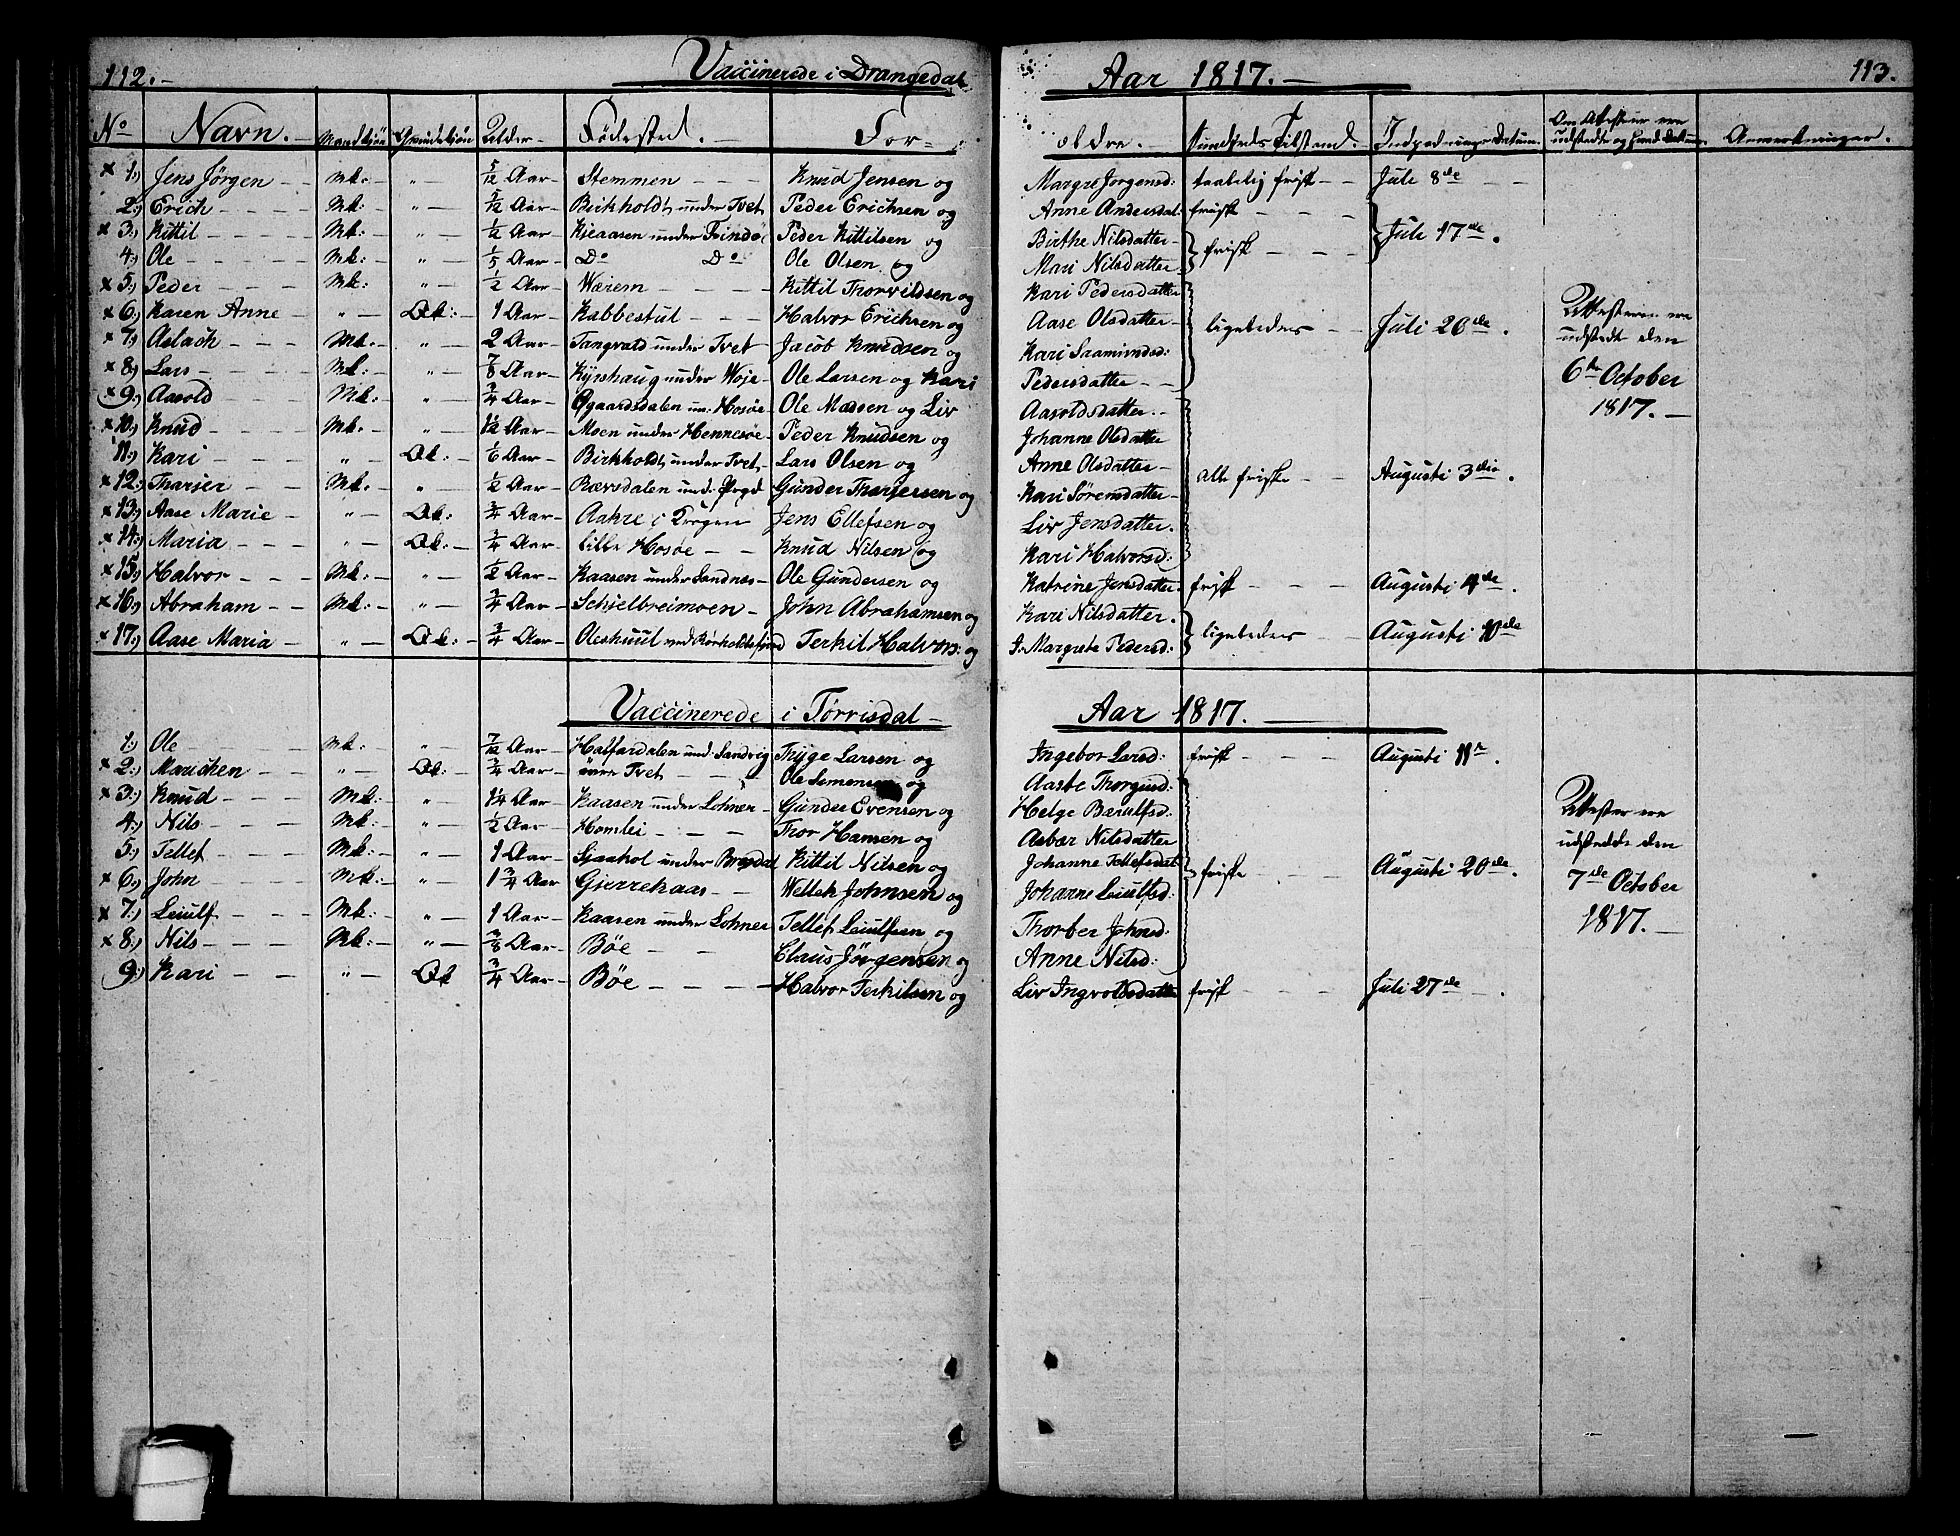 112.-
Vaccinerede i Drangedal
Aar 1817.-
113.
No Navn. Mandkiøn Qvindekiøn Alder Fødested. For=
ældre. Sundheds Tilstand. Indpodnings Datum. Om Attester ere udstædte og hvad Datum. Anmerkninger.
x 1.) Jens Jörgen Mk: " 5/12 Aar Stemmen Knud Jensen og Margre Jorgensd: taalelig frisk Juli 8de
2.) Erich Mk: " Aar Birkholdt under Tvet Peder Erichsen og Anne Andersdat: frisk
x 3.) Kittil Mk: " Aar Kieaasen under Peder Kittilsen og Birthe Nilsdatter frisk Juli 17de.
4.) Ole Mk: " 1/5 Aar Do Do Ole Olsen og Mari Nilsdatter
x 5.) Peder Mk: " 1/2 Aar Wærem Kittil Thorvildsen og Kari Pedersdatter
x 6.) Karen Anne " Qk: 1 Aar Kabbestul Halvor Erichsen og Aase Olsdatter ligeledes Juli 26de. Attesterne ere
x 7.) Aslach Mk: " 2 Aar Tangvald under Tvet Jacob Knudsen og Kari Saamundsd: udstedt den
x 8.) Lars Mk: " 7/8 Aar under Woje Ole Larsen og Kari Pedersdatter 6te October
x 9.) Aasold Mk: " 3/4 Aar Øgaardsdalen un: Hosøe Ole Madsen og Liv Aasoldsdatter 1817.
x 10.) Knud Mk: " Aar Moen under Hennesøe Peder Knudsen og Johanne Olsdatter
11.) Kari " Qk: 1/6 Aar Birkholdt under Tvet Lars Olsen og Anne Olsdatter
x 12.) Tharjer Mk: " 1/2 Aar Rævsdalen und: Gunder Tharjersen og Kari Sörensdatter alle friske Augusti 3die.
x 13.) Aase Marie " Qk: 3/4 Aar Aakre i Jens Ellefsen og Liv Jensdatter.
x 14.) Maria " Qk: 1/4 Aar Lille Hosøe Knud Nilsen og Kari Halvorsd:
x 15.) Halvor Mk: " 1/2 Aar Kaasen under Sandnes Ole Gundersen og Katrine Jensdatter frisk Augusti 4de.
x 16.) Abraham Mk: " 3/4 Aar Schielbreimoen John Abrahamsen og Kari Nilsdatter.
x 17.) Aase Maria " Qk: 3/4 Aar Oleshuul ved Rørholdtfjord Terkil Halvors: og I. Margrete Pedersd: ligeledes Augusti 10de
Vaccinerede i Törrisdal
Aar 1817.
1.) Ole Mk: " 7/12 Aar under Sandvig Thyge Larsen og Ingebor Larsd: frisk Augusti 11te.
x 2.) Marichen " Qk: 3/4 Aar övre Tvet Ole Simonsen og Aaste Thorgusd:
x 3.) Knud Mk: " 1 1/4 Aar Kaasen under Lohner Gunder Evensen og Helge Baraldsd: Attester ere
4.) Nils Mk: " 1/2 Aar Homlei Tror Hansen og Asbær Nilsdatter udstedde den
5.) Tellef Mk: " 1 Aar under Kittil Nilsen og Johanne Tellefsdat: friske Augusti 20de. 7de October
x 6.) John Mk: " 1 3/4 Aar Gjerrekaas Wetleh Johnsen og Johanne Leiulfsd: 1817.
x 7.) Leiulf Mk: " 1 Aar Kaasen under Lohner Tellef Leiulfsen og Thorber Johnsd:
x 8.) Nils Mk: " 3/8 Aar Bøe Claus Jörgensen og Anne Nilsd:
9.) Kari " Qk 3/4 Aar Bøe Halvor Terkilsen og Liv Ingvoldsdatter frisk Juli 27de.